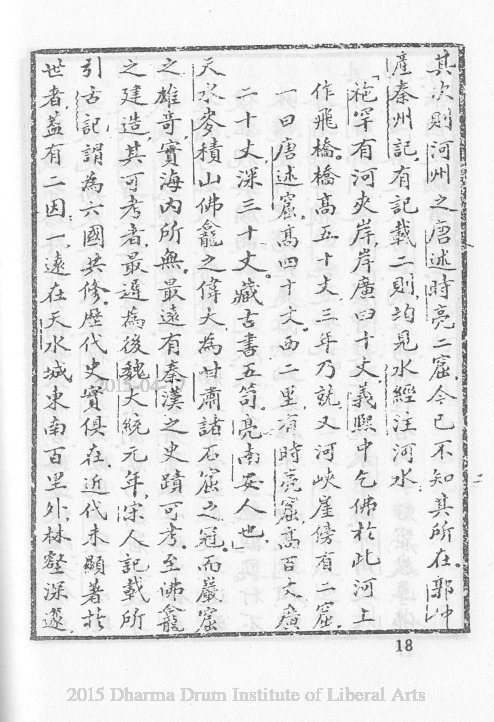 其次則河州之唐述時亮二窟。今已不知其所在。郭仲
產秦州記。有記載二則。均見水經注河水。
「枹罕有河夾岸。岸廣四十丈。義熙中乞佛於此河上
作飛橋。橋高五十丈。三年乃就。又河峽崖傍有二窟。
一曰唐述窟。高四十丈。西二里。有時亮窟。高百丈。廣
二十丈。深三十丈。藏古書五笥。亮南安人也」
天水麥積山佛龕之偉大。為甘肅諸石窟之冠。而巖窟
之雄奇。實海內所無。最遠有秦漢之史蹟可考。至佛龕
之建造。其可考者。最遲為後魏大統元年。宋人記載所
引古記。謂為六國共修。歷代史實俱在。近代未顯著於
世者。蓋有二因。一、遠在天水城東南百里外。林壑深邃。
18
2015-04-27
2015 Dharma Drum Institute of Liberal Arts